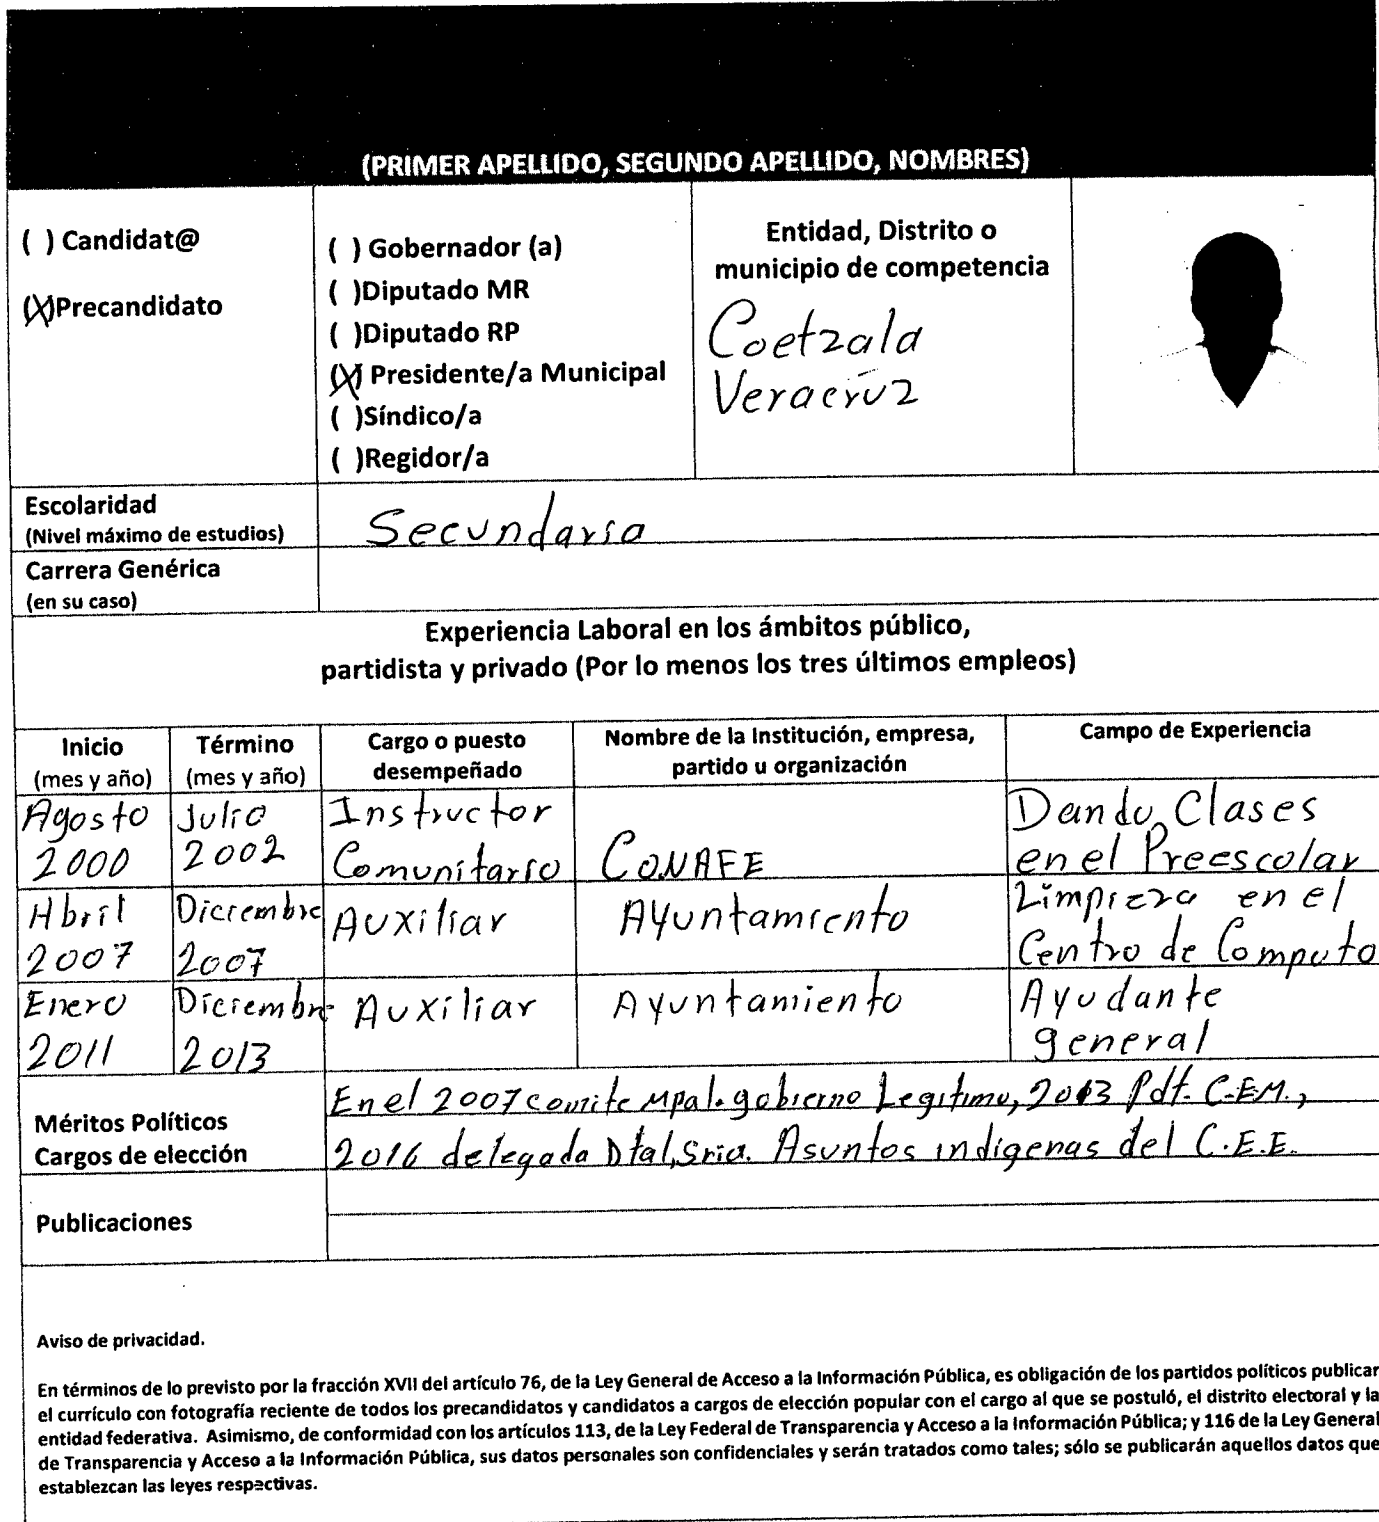 (PRIMER APELLIDO, SEGUNDO APELLIDO, NOMBRES)
( ) Candidat@
(X)Precandidato
( ) Gobernador (a)
( )Diputado MR
( )Diputado RP
(X) Presidente/a Municipal
( )Síndico/a
( )Regidor/a
Entidad, Distrito o
municipio de competencia
Coetzala
Veracruz
Escolaridad
(Nivel máximo de estudios)
Secundaria
Carrera Genérica
(en su caso)
Experiencia Laboral en los ámbitos público,
partidista y privado (Por lo menos los tres últimos empleos)
Inicio
(mes y año)
Término
(mes y año)
Cargo o puesto
desempeñado
Nombre de la Institución, empresa,
partido u organización
Campo de Experiencia
Agosto
2000
Julio
2002
Instructor
Comunitario
CONAFE
Dando Clases
en el Preescolar
Abril
2007
Diciembre
2007
Auxiliar
Ayuntamiento
Limpieza en el
Centro de Computo
Enero
2011
Diciembre
2013
Auxiliar
Ayuntamiento
Ayudante
general
Méritos Políticos
Cargos de elección
En el 2007 comite Mpal. gobierno Legitimo, 2013 Pdt. C.E.M.,
2016 delegada Dtal, Sria. Asuntos indigenas del C.E.E.
Publicaciones
Aviso de privacidad.
En términos de lo previsto por la fracción XVII del artículo 76, de la Ley General de Acceso a la Información Pública, es obligación de los partidos políticos publicar
el currículo con fotografía reciente de todos los precandidatos y candidatos a cargos de elección popular con el cargo al que se postuló, el distrito electoral y la
entidad federativa. Asimismo, de conformidad con los artículos 113, de la Ley Federal de Transparencia y Acceso a la Información Pública; y 116 de la Ley General
de Transparencia y Acceso a la Información Pública, sus datos personales son confidenciales y serán tratados como tales; sólo se publicarán aquellos datos que
establezcan las leyes respectivas.